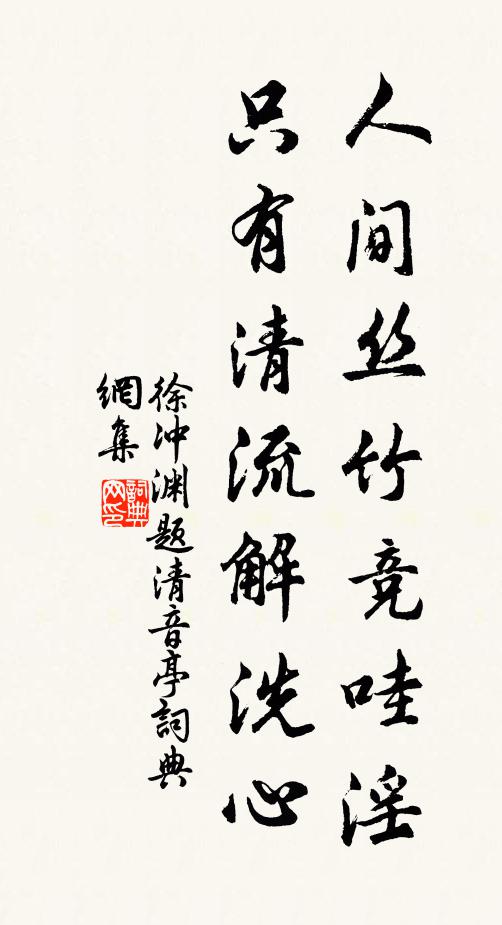 人间丝竹竞哇淫
只有清流解洗心
徐冲渊题清音亭詞典
網集
詞典网印